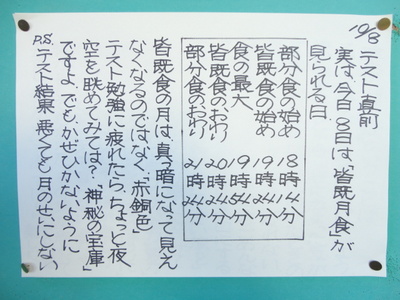 10/8
テスト直前
実は、今日8日は、"皆既月食"が
見られる日
部分食の始め 18時14分
皆既食の始め 19時24分
食の最大 19時54分
皆既食のおわり 20時24分
部分食のおわり 21時34分
皆既食の月は、真っ暗になって見え
なくなるのではなく、"赤銅色"
テスト勉強に疲れたら、ちょっと夜
空を眺めてみては?"神秘の宝庫"
ですよ。でも、かぜひかないように
P.S. テスト結果悪くとも月のせいにしない